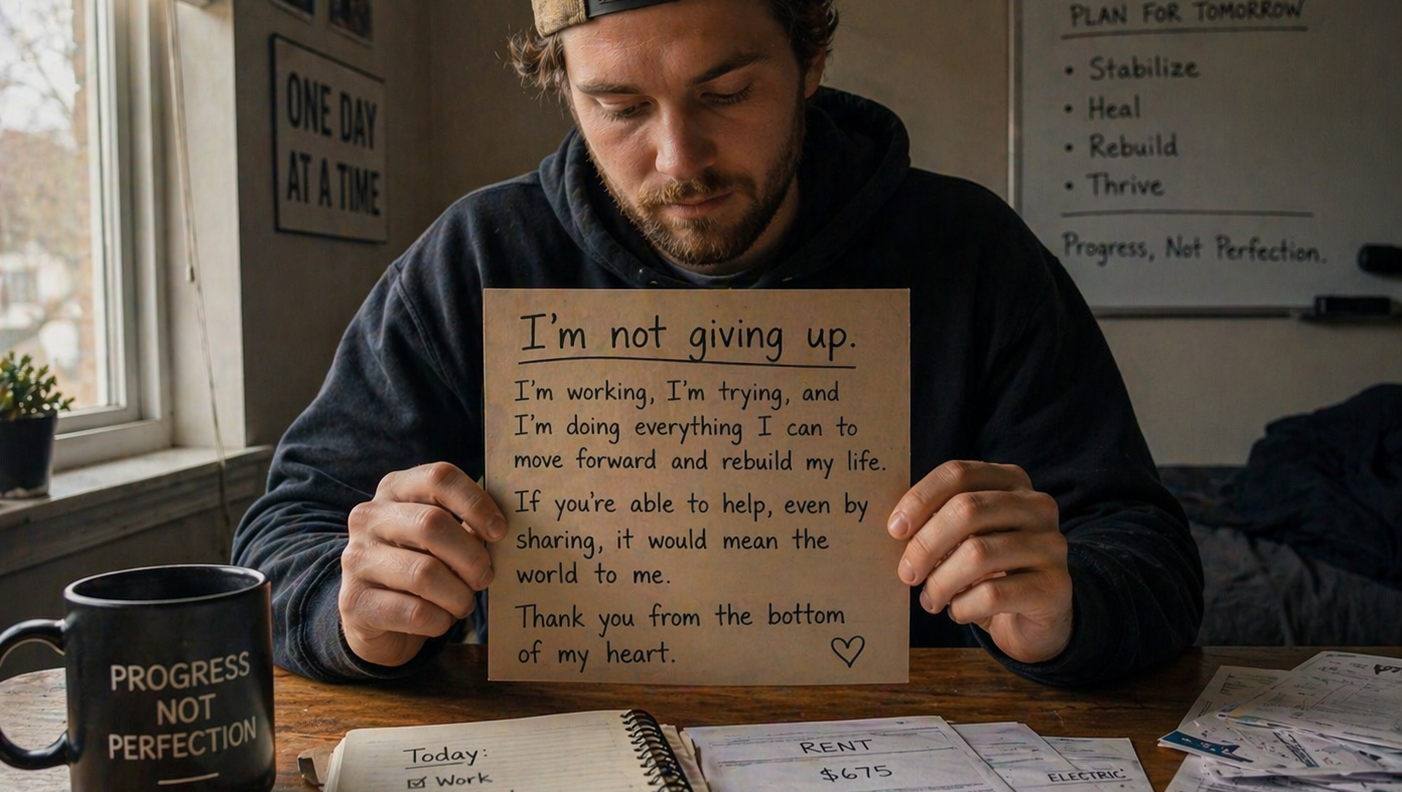 ONE DAY
AT A TIME
PLAN FOR TOMORROW
• Stabilize
• Heal
• Rebuild
• Thrive
Progress, Not Perfection.
I'm not giving up.
I'm working, I'm trying, and
I'm doing everything I can to
move forward and rebuild my life.
If you're able to help, even by
sharing, it would mean the
world to me.
Thank you from the bottom
of my heart.
PROGRESS
NOT
PERFECTION
Today:
☑ Work
RENT
$675
ELECTRIC